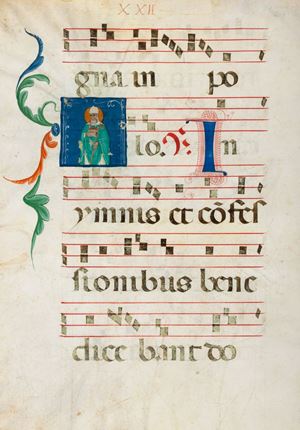 XXII
gna in po
lo. In
ymnis et cõfes
sionibus bene
dice bant do